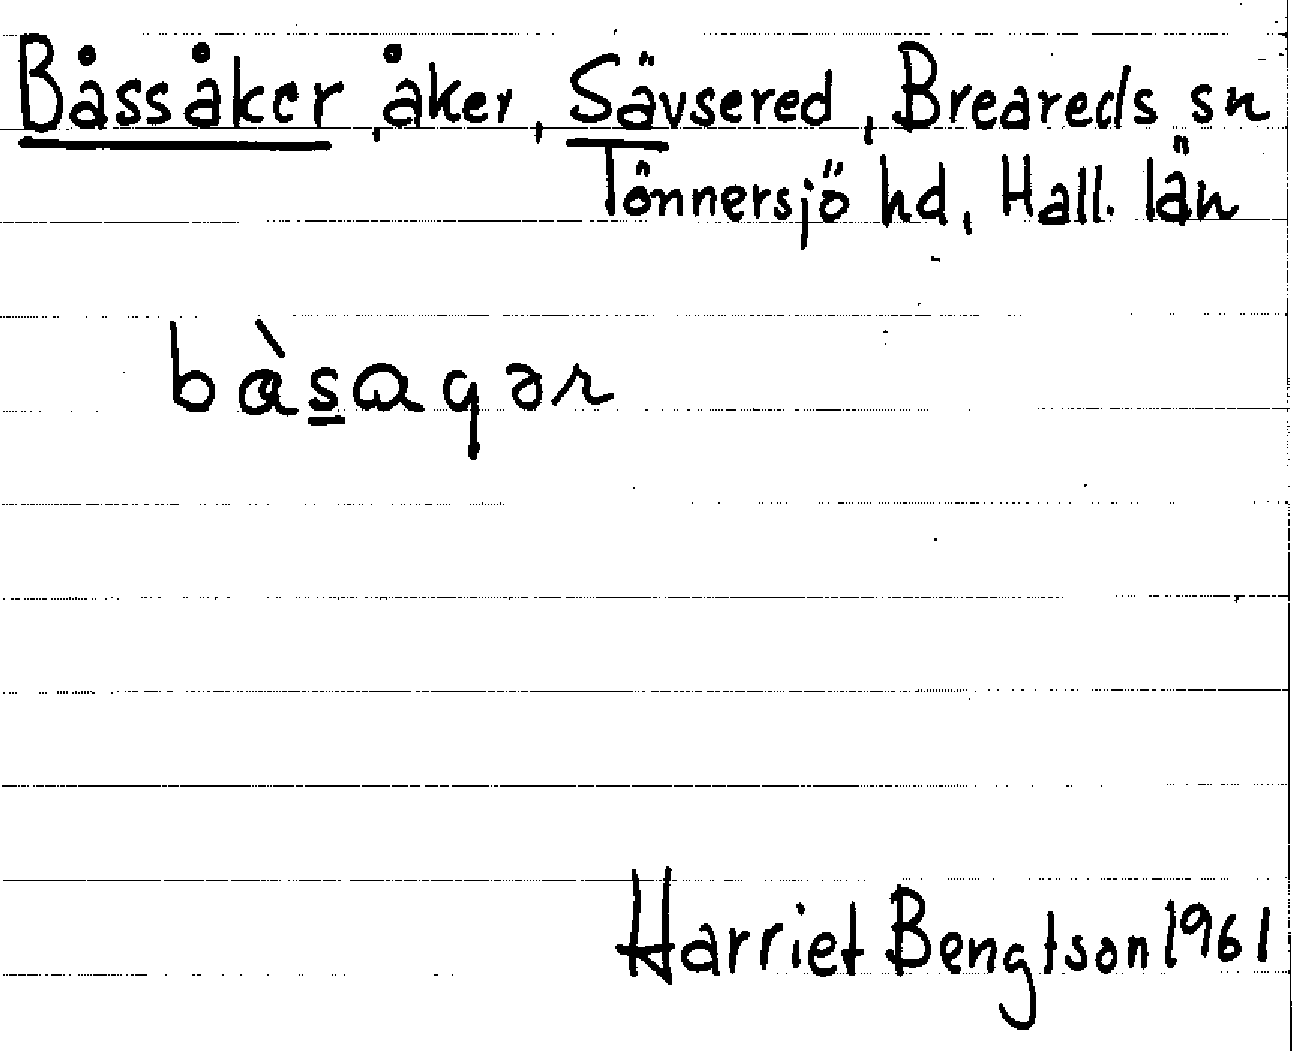 Båssåker, åker, Sävsered, Breareds sn
Tönnersjö hd, Hall. län
bàsagər
Harriet Bengtson 1961